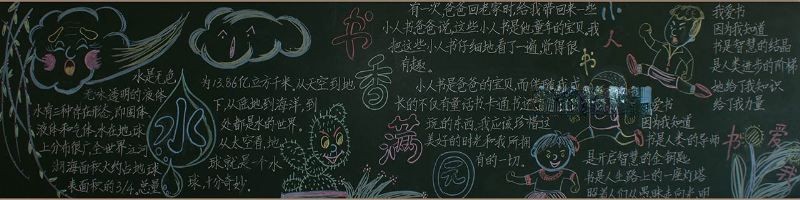 水是无色
无味透明的液体
水有三种存在形态,即固体
液体和气体,水在地球
上分布很广,全世界江河
湖海面积大约占地球
表面积的3/4。总量
水
为13.86亿立方千米,从天空到地
下,从陆地到海洋,到
处都是水的世界。
从太空看,地
球就是一个水
球,十分奇妙。
书
香
满
园
有一次,爸爸回老家时,给我带回来一些
小人书,爸爸说,这些小人书是他童年的宝贝。我
把这些小人书仔细地看了一遍,觉得很
有趣。
小人书是爸爸的宝贝,而伴随我成
长的不仅有童话书卡通书还
玩的东西,我应该珍惜这
美好的时光和我所拥
有的一切。
小
人
书
我爱书
因为我知道
书是智慧的结晶
是人类进步的阶梯
她给了我知识
给了我力量
爱书
因为我知道
书是人类的导师
是开启智慧的金钥匙
书是人生路上的一座灯塔
照着人们从愚昧走向光明
书
爱
我